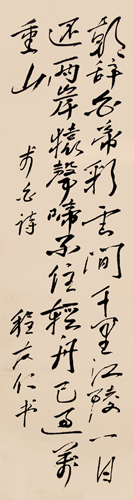 朝辞白帝彩云間千里江陵一日
还両岸猿聲啼不住輕舟已过萬
重山
李白詩
程友仁书